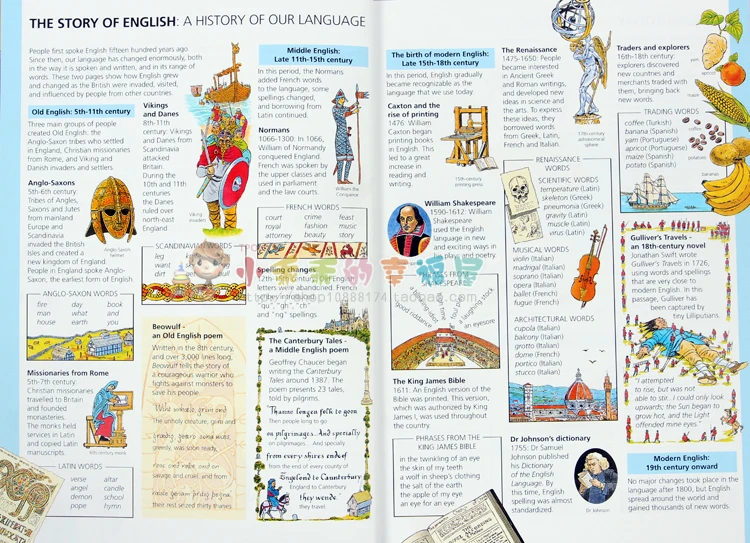 THE STORY OF ENGLISH: A HISTORY OF OUR LANGUAGE
People first spoke English fifteen hundred years ago
Since then, our language has changed enormously, both
in the way it is spoken and written, and in its range of
words. These two pages show how English grew
and changed as the British were invaded, visited,
and influenced by people from other countries.
Old English: 5th-11th century
Three main groups of people
created Old English: the
Anglo-Saxon tribes who settled
in England, Christian missionaries
from Rome, and Viking and
Danish invaders and settlers.
Anglo-Saxons
5th-6th century
Tribes of Angles,
Saxons and Jutes
from mainland
Europe and
Scandinavia
invaded the British
Isles and created a
new kingdom of England.
People in England spoke Anglo-
Saxon, the earliest form of English
Anglo-Saxon
helmet
ANGLO-SAXON WORDS
fire day book
man what and
house earth you
Missionaries from Rome
5th-7th century:
Christian missionaries
travelled to Britain
and founded
monasteries.
The monks held
services in Latin
and copied Latin
manuscripts.
6th century monk
LATIN WORDS
verse altar
angel candle
demon school
pope hymn
Vikings
and Danes
8th-11th
century: Vikings
and Danes from
Scandinavia
attacked
Britain.
During the
10th and 11th
centuries
the Danes
ruled over
north-east
England
Viking
invaders
SCANDINAVIAN WORDS
leg
want
dirt
Beowulf -
an Old English poem
Written in the 8th century,
and over 3,000 lines long,
Beowulf tells the story of
a courageous warrior who
fights against monsters to
save his people.
The unholy creature, grim and
greedy, was soon ready,
savage and cruel, and from
their rest seized thirty thanes
Middle English:
Late 11th-15th century
In this period, the Normans
added French words
to the language, some
spellings changed,
and borrowing from
Latin continued.
Normans
1066-1300: In 1066,
William of Normandy
conquered England.
French was spoken by
the upper classes and
used in parliament
and the law courts.
William the
Conqueror
FRENCH WORDS
court crime feast
royal fashion music
attorney beauty story
Spelling changes
12th-15th century:
letters were abandoned. French
"qu", "gh", "ch"
and "ng" spellings.
The Canterbury Tales -
a Middle English poem
Geoffrey Chaucer began
writing the Canterbury
Tales around 1387. The
poem presents 23 tales,
told by pilgrims.
Thanne longen folk to goon
Then people long to go
on pilgrimages. And specially
on pilgrimages. And specially
from every shires ende
from the end of every county of
Engelond to Caunterbury
England to Canterbury
they wende.
they travel.
小 的幸福屋
The birth of modern English:
Late 15th-18th century
In this period, English gradually
became recognizable as the
language that we use today.
Caxton and the
rise of printing
1476: William
Caxton began
printing books
in English. This
led to a great
increase in
reading and
writing.
15th-century
printing press
William Shakespeare
1590-1612: William
Shakespeare
used the English
language in new
and exciting ways in
his plays and poetry.
PHRASES FROM
SHAKESPEARE
good riddance
a laughing stock
an eyesore
The King James Bible
1611: An English version of the
Bible was printed. This version,
which was authorized by King
James I, was used throughout
the country.
PHRASES FROM THE
KING JAMES BIBLE
in the twinkling of an eye
the skin of my teeth
a wolf in sheep's clothing
the salt of the earth
the apple of my eye
an eye for an eye
The Renaissance
1475-1650: People
became interested
in Ancient Greek
and Roman writings,
and developed new
ideas in science and
the arts. To express
these ideas, they
borrowed words
from Greek, Latin,
French and Italian.
17th century
armillary
sphere
RENAISSANCE
WORDS
SCIENTIFIC WORDS
temperature (Latin)
skeleton (Greek)
pneumonia (Greek)
gravity (Latin)
muscle (Latin)
virus (Latin)
MUSICAL WORDS
violin (Italian)
madrigal (Italian)
soprano (Italian)
opera (Italian)
ballet (French)
fugue (French)
ARCHITECTURAL WORDS
cupola (Italian)
balcony (Italian)
grotto (Italian)
dome (French)
portico (Italian)
stucco (Italian)
Dr Johnson's dictionary
1755: Dr Samuel
Johnson published
his Dictionary
of the English
Language. By
this time, English
spelling was almost
standardized.
Dr Johnson
Traders and explorers
16th-18th century:
explorers discovered
new countries and
merchants traded with
them, bringing back
new words.
TRADING WORDS
coffee (Turkish)
banana (Spanish)
yam (Portuguese)
apricot (Portuguese)
maize (Spanish)
potato (Spanish)
potatoes
bananas
Gulliver's Travels -
an 18th-century novel
Jonathan Swift wrote
Gulliver's Travels in 1726,
using words and spellings
that are very close to
modern English. In this
passage, Gulliver has
been captured by
tiny Lilliputians
"I attempted
to rise, but was not
able to stir...I could only look
upwards; the Sun began to
grow hot, and the Light
offended mine eyes."
Modern English:
19th century onward
No major changes took place in the
language after 1800, but English
spread around the world and
gained thousands of new words.